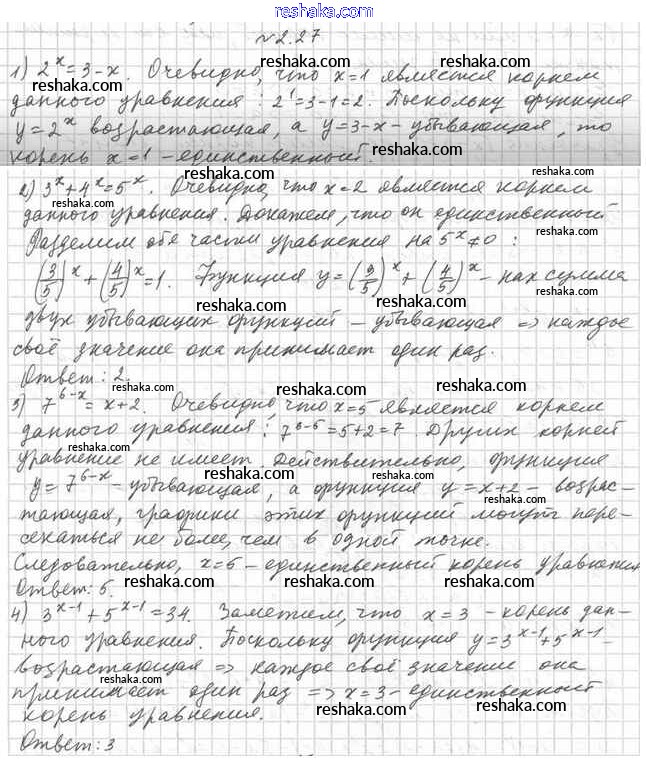 reshaka.com
№2.27
reshaka.com
1) 2^x = 3 - x. Очевидно, что x = 1 является корнем
reshaka.com reshaka.com
данного уравнения: 2^1 = 3 - 1 = 2. Поскольку функция
reshaka.com
y = 2^x возрастающая, а y = 3 - x - убывающая, то
reshaka.com
корень x = 1 - единственный.
reshaka.com
2) 3^x + 4^x = 5^x. Очевидно, что x = 2 является корнем
reshaka.com reshaka.com
данного уравнения. Докажем, что он единственный
reshaka.com
Разделим обе части уравнения на 5^x ≠ 0:
reshaka.com
(3/5)^x + (4/5)^x = 1. Функция y = (3/5)^x + (4/5)^x - как сумма
reshaka.com reshaka.com
двух убывающих функций - убывающая => каждое
reshaka.com reshaka.com
своё значение она принимает один раз.
Ответ: 2.
reshaka.com reshaka.com reshaka.com
3) 7^{6-x} = x + 2. Очевидно, что x = 5 является корнем
reshaka.com
данного уравнения: 7^{6-5} = 5 + 2 = 7. Других корней
reshaka.com reshaka.com
уравнение не имеет Действительно, функция
y = 7^{6-x} - убывающая, а функция y = x + 2 - возрас-
reshaka.com reshaka.com
тающая, графики этих функций могут пере-
reshaka.com reshaka.com
секаться не более, чем в одной точке.
Следовательно, x = 5 - единственный корень уравнения
reshaka.com reshaka.com
Ответ: 5.
reshaka.com
4) 3^{x-1} + 5^{x-1} = 34. Заметим, что x = 3 - корень дан-
reshaka.com
ного уравнения. Поскольку функция y = 3^{x-1} + 5^{x-1} -
reshaka.com
возрастающая => каждое своё значение она
reshaka.com reshaka.com
принимает один раз => x = 3 - единственный
reshaka.com
корень уравнения.
reshaka.com
Ответ: 3
reshaka.com